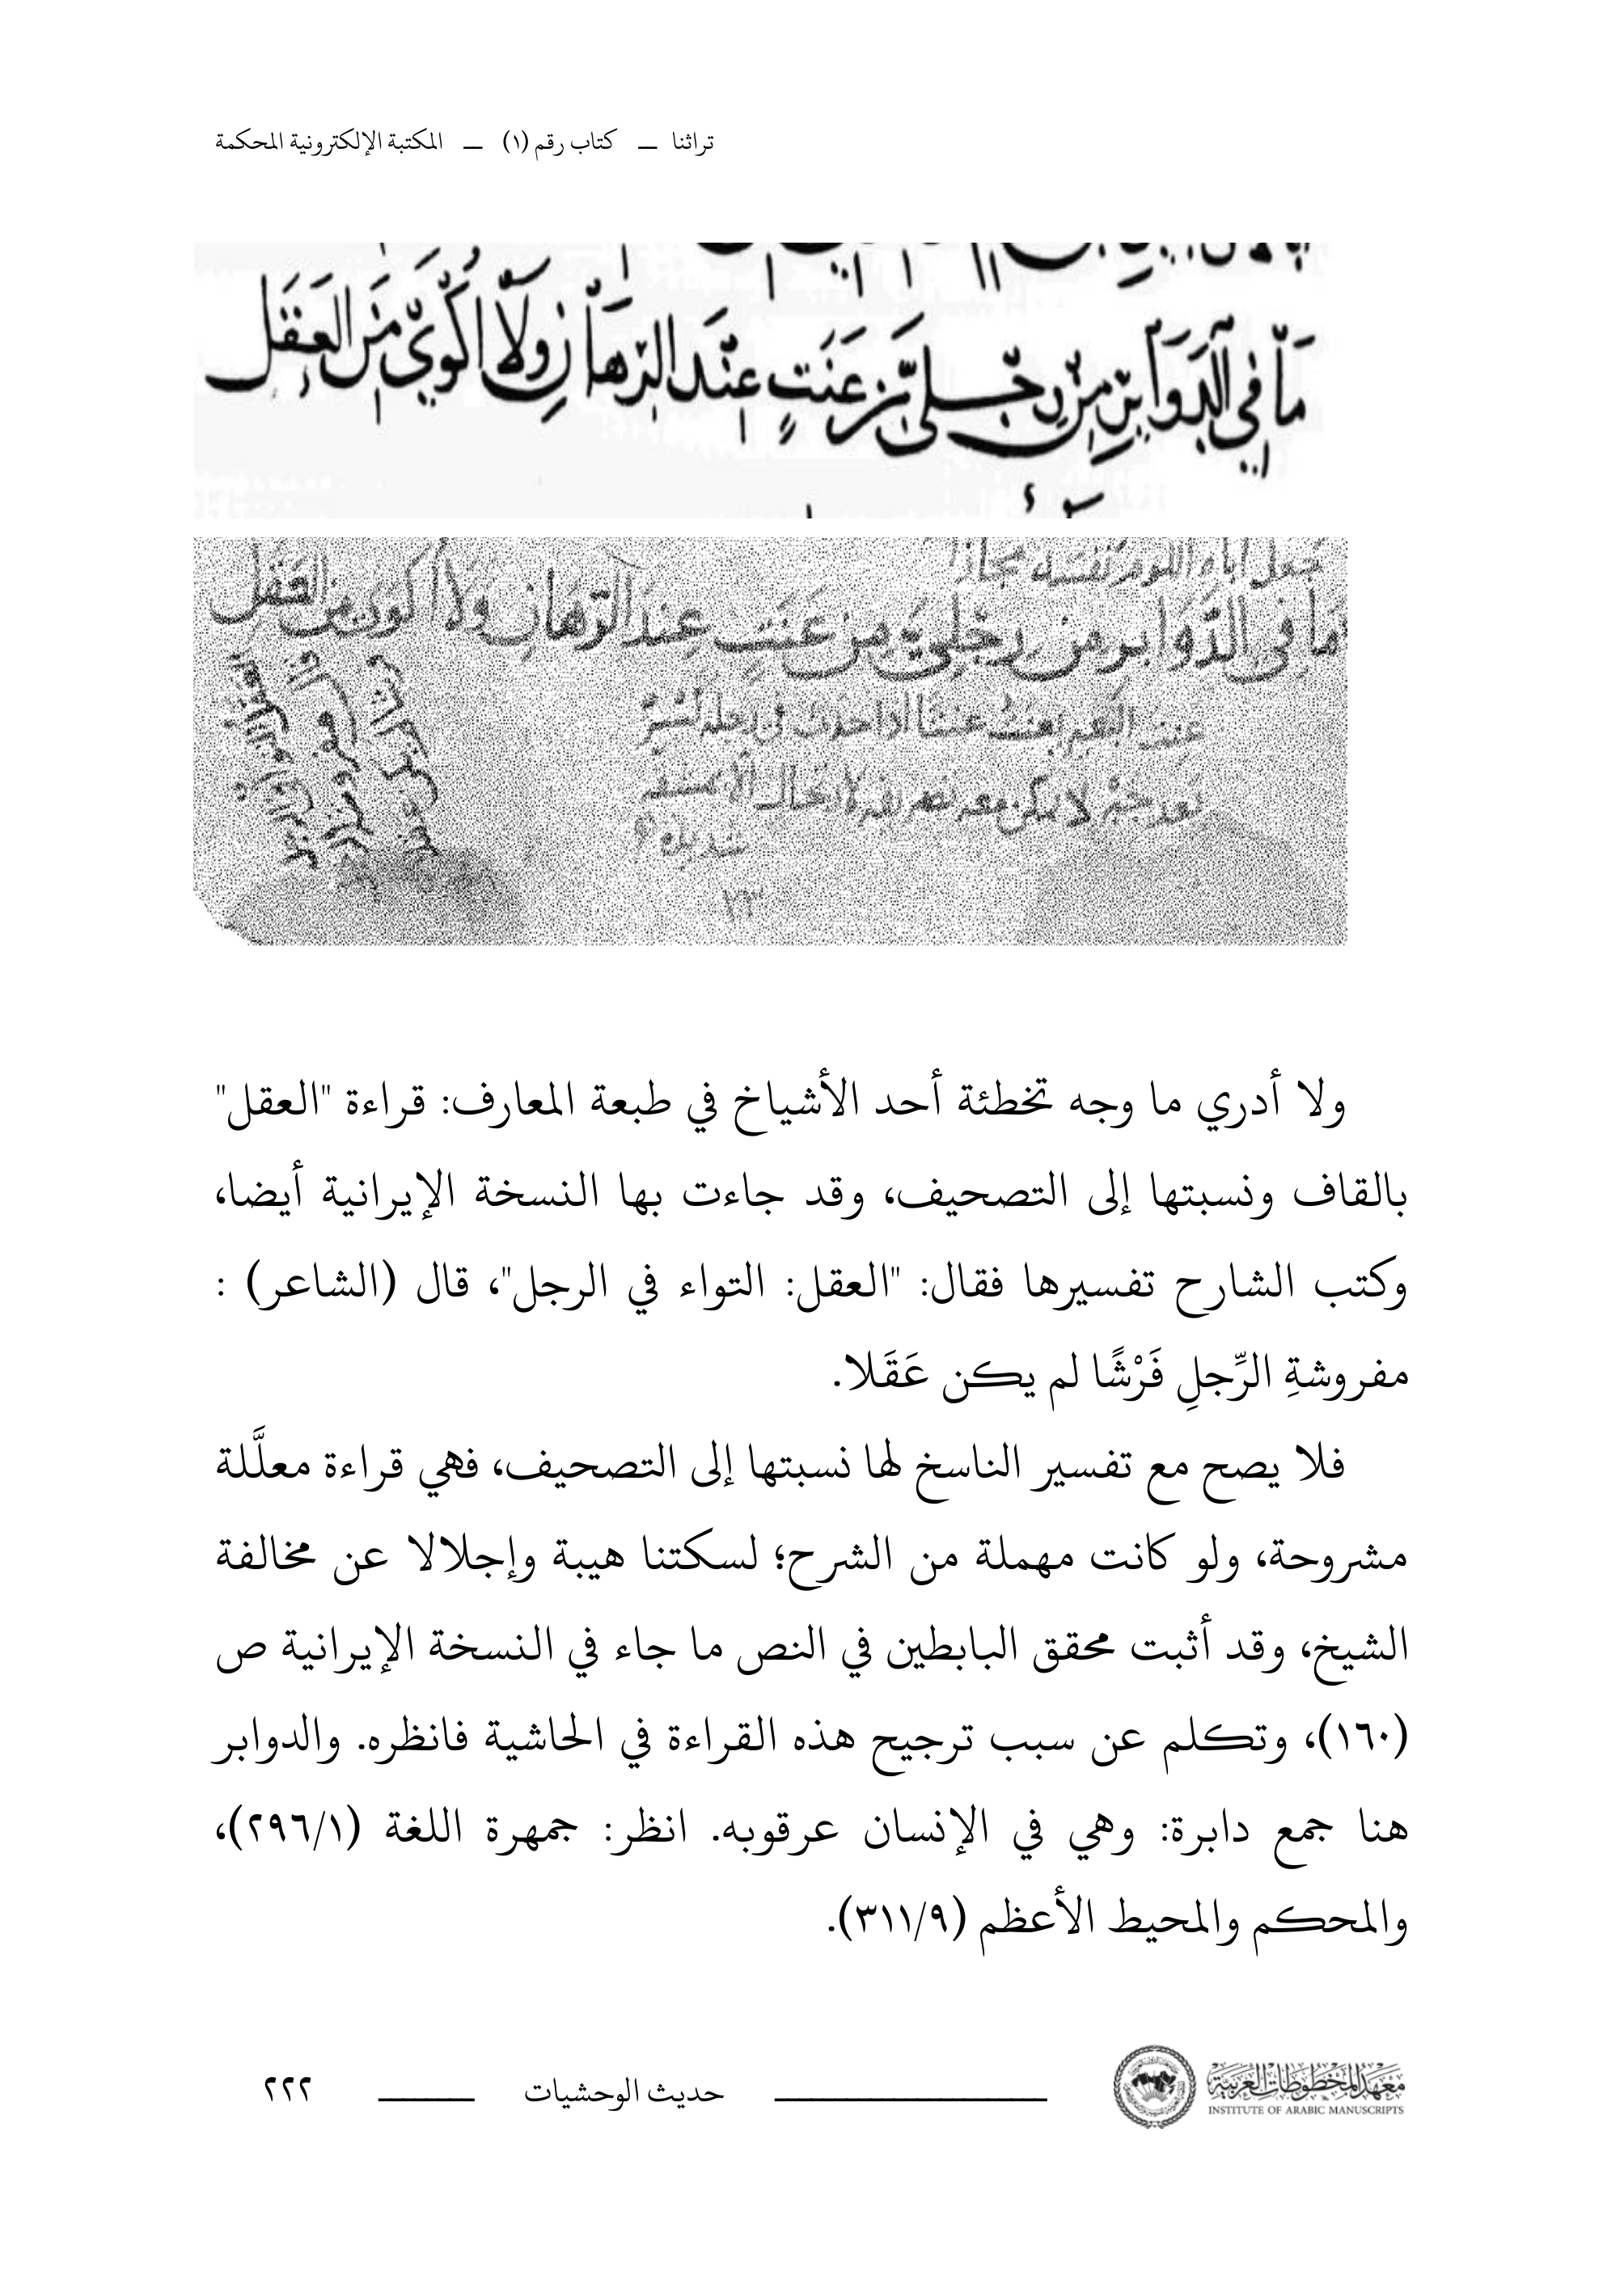 تراثنا — كتاب رقم (١) — المكتبة الإلكترونية المحكمة
مَا فِي الدَّوَابِرِ مِنْ رِجْلَيَّ مِنْ عَنَتٍ عِنْدَ الرِّهَانِ وَلَا أُكْوَى مِنَ العَقَلِ
مَا فِي الدَّوَابِرِ مِنْ رِجْلَيَّ مِنْ عَنَتٍ عِندَ الرِّهَانِ وَلَا أُكْوَى مِنَ العَقَلِ
شديدة
٢٣
ولا أدري ما وجه تخطئة أحد الأشياخ في طبعة المعارف: قراءة "العقل"
بالقاف ونسبتها إلى التصحيف، وقد جاءت بها النسخة الإيرانية أيضا،
وكتب الشارح تفسيرها فقال: "العقل: التواء في الرجل"، قال (الشاعر) :
مفروشةِ الرِّجلِ فَرْشًا لم يكن عَقَلا.
فلا يصح مع تفسير الناسخ لها نسبتها إلى التصحيف، فهي قراءة معلَّلة
مشروحة، ولو كانت مهملة من الشرح؛ لسكتنا هيبة وإجلالا عن مخالفة
الشيخ، وقد أثبت محقق البابطين في النص ما جاء في النسخة الإيرانية ص
(١٦٠)، وتكلم عن سبب ترجيح هذه القراءة في الحاشية فانظره. والدوابر
هنا جمع دابرة: وهي في الإنسان عرقوبه. انظر: جمهرة اللغة (٢٩٦/١)،
والمحكم والمحيط الأعظم (٣١١/٩).
معهد المخطوطات العربية
INSTITUTE OF ARABIC MANUSCRIPTS
حديث الوحشيات
٢٢٢